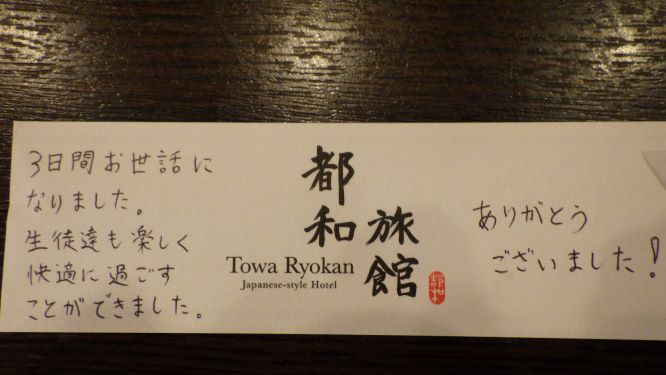 3日間お世話に
なりました。
生徒達も楽しく
快適に過ごす
ことができました。
都和
旅館
Towa Ryokan
Japanese-style Hotel
都和
ありがとう
ございました!